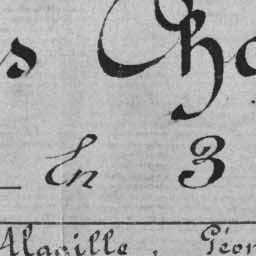 s Cha
En 3
Alaville, Géor